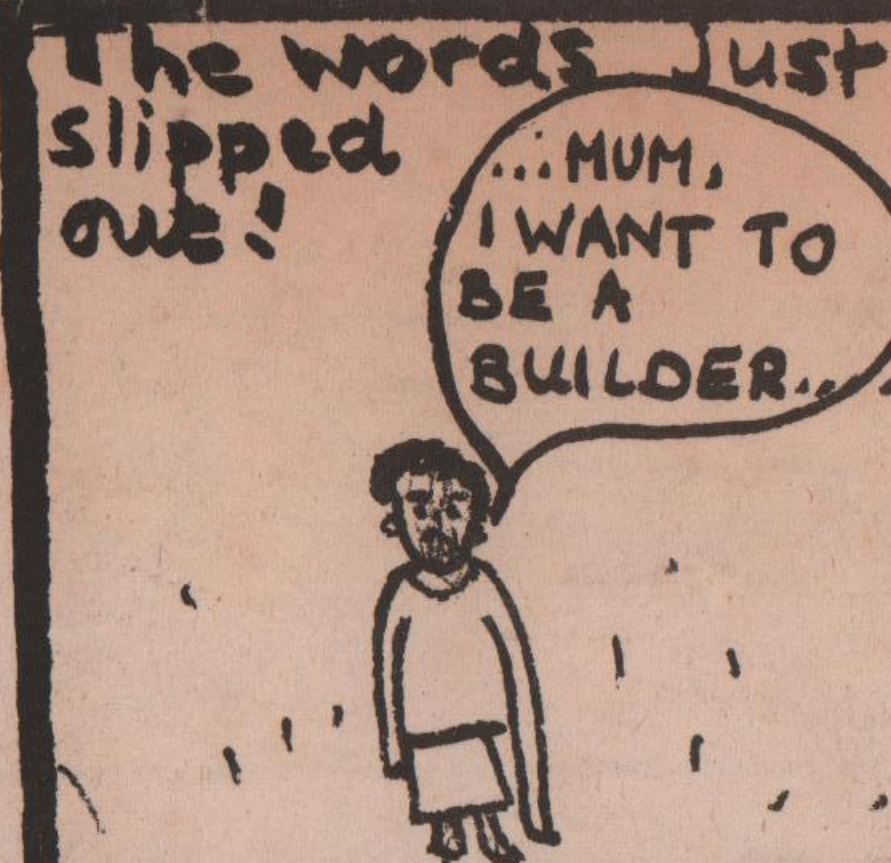 The words Just
slipped
out!
...MUM,
I WANT TO
BE A
BUILDER...